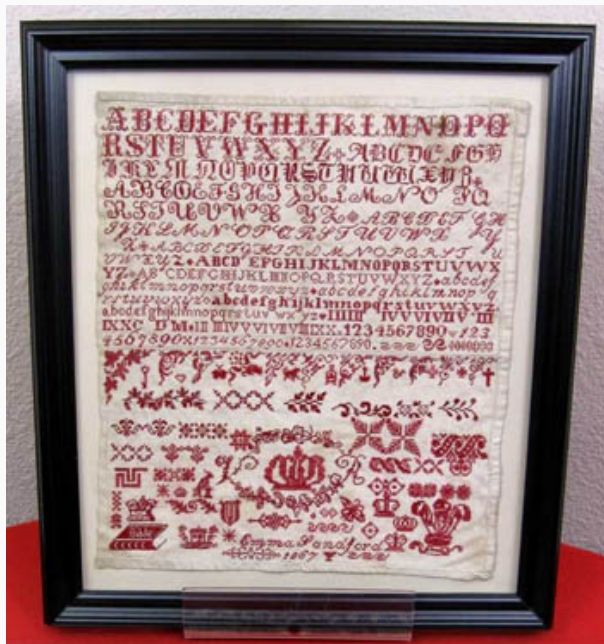 ABCDEFGHIJKLMNOPQ
RSTUVWXYZ ABCDEFGH
IKLMNOPQRSTUVWXYZ
ABCDEFGHIJKLMNOPQ
RSTUVWXYZ ABCDEFGH
IJKLMNOPQRSTUVWXY
Z ABCDEFGHIKLMNOPQRSTU
VWXYZ ABCDEFGHIJKLMNOPQRSTUVWX
YZ ABCDEFGHIJKLMNOPQRSTUVWXYZ abcdef
ghiklmnopqrstuvwxyz abcdefghiklmnopq
rstuvwxyz abcdefghijklmnopqrstuvwxyz
abcdefghijklmnopqrstuvwxyz
1234567890 123
4567890 1234567890 1234567890
V R
Emma Sandford
1867